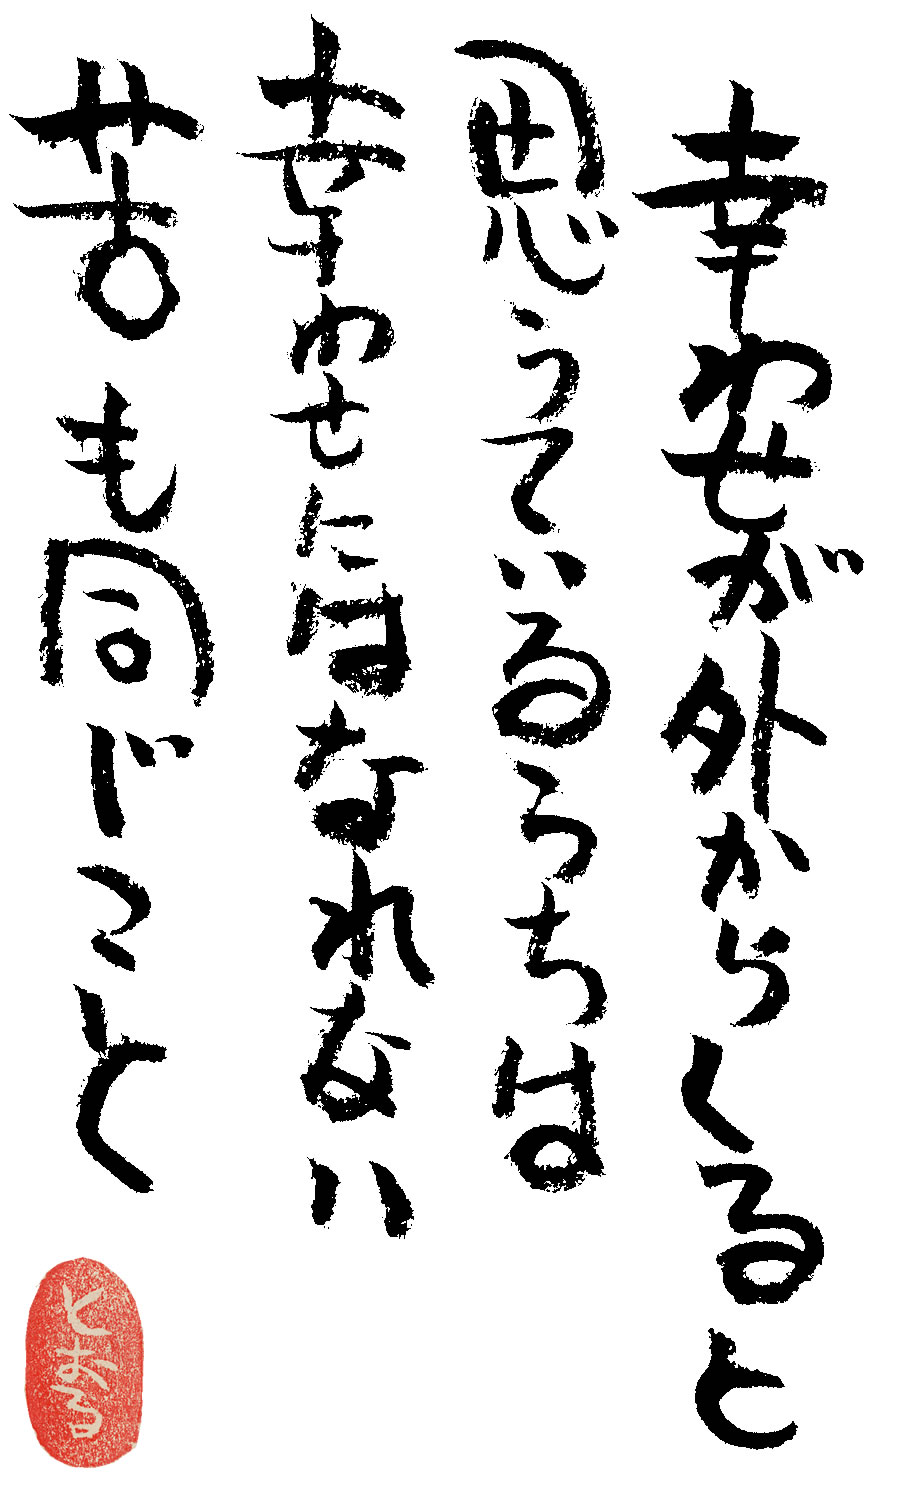 幸わせが外からくると
思うているうちは
幸わせにはなれない
苦も同じこと
とおる